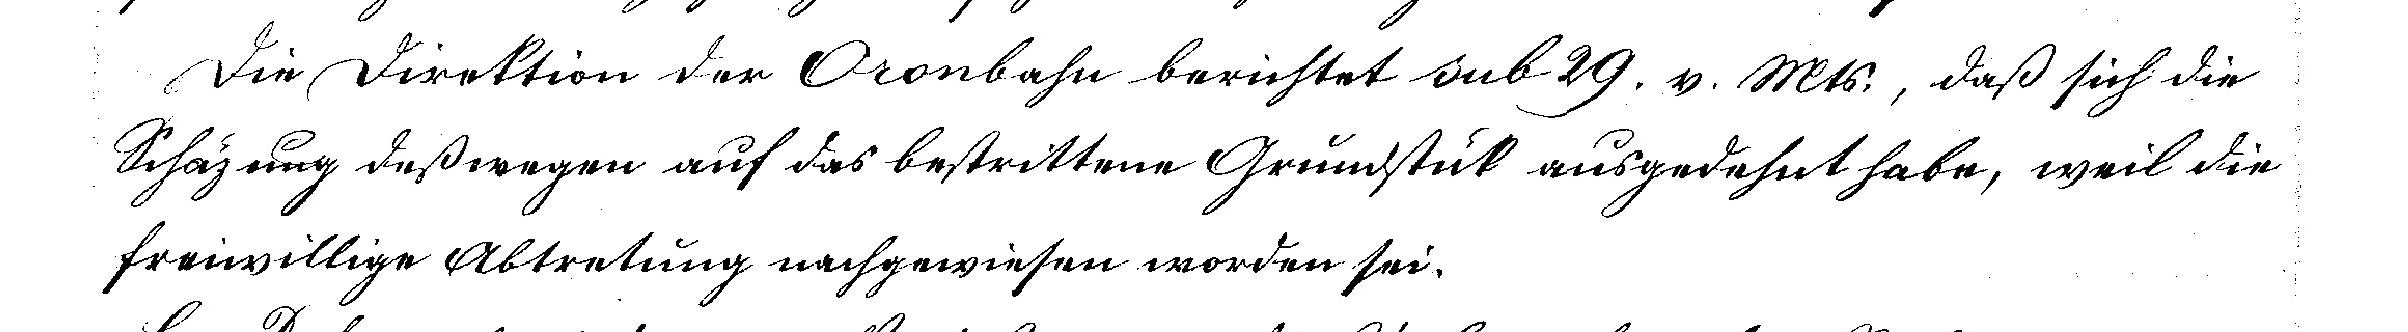 Die Direktion der Oronbahn berichtet sub 29. v. Mts., daß sich die
Schäzung deßwegen auf das bestrittene Grundstük ausgedehnt habe, weil die
freiwillige Abtretung nachgewiesen worden sei.